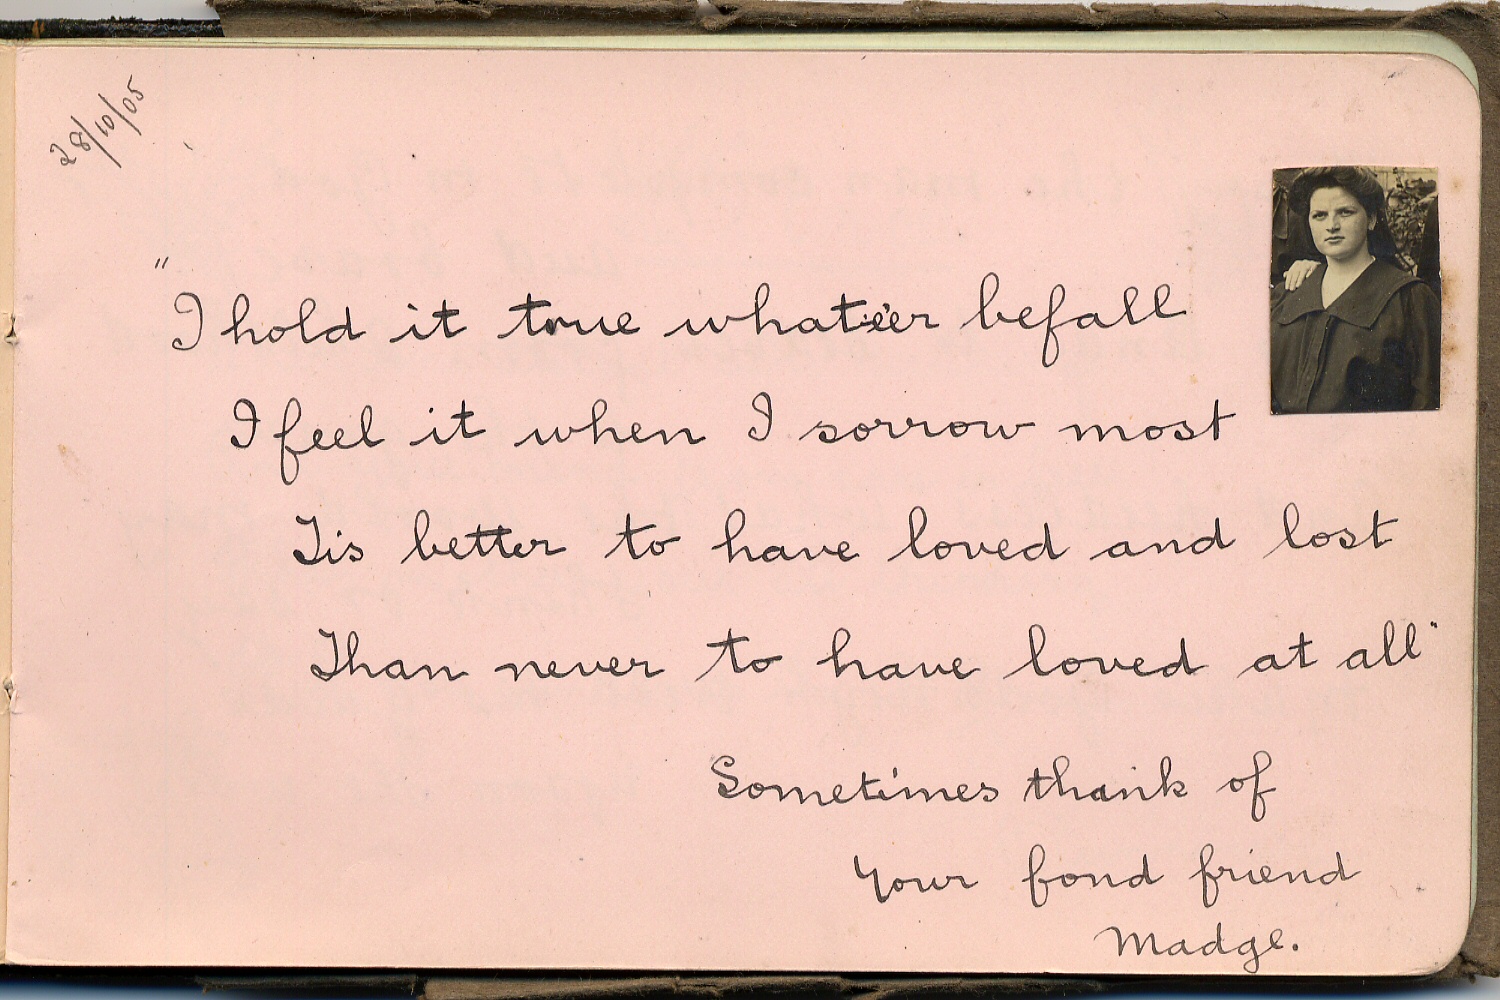 28/10/05
"I hold it true whate'er befall
I feel it when I sorrow most
Tis better to have loved and lost
Than never to have loved at all"
Sometimes think of
your fond friend
Madge.